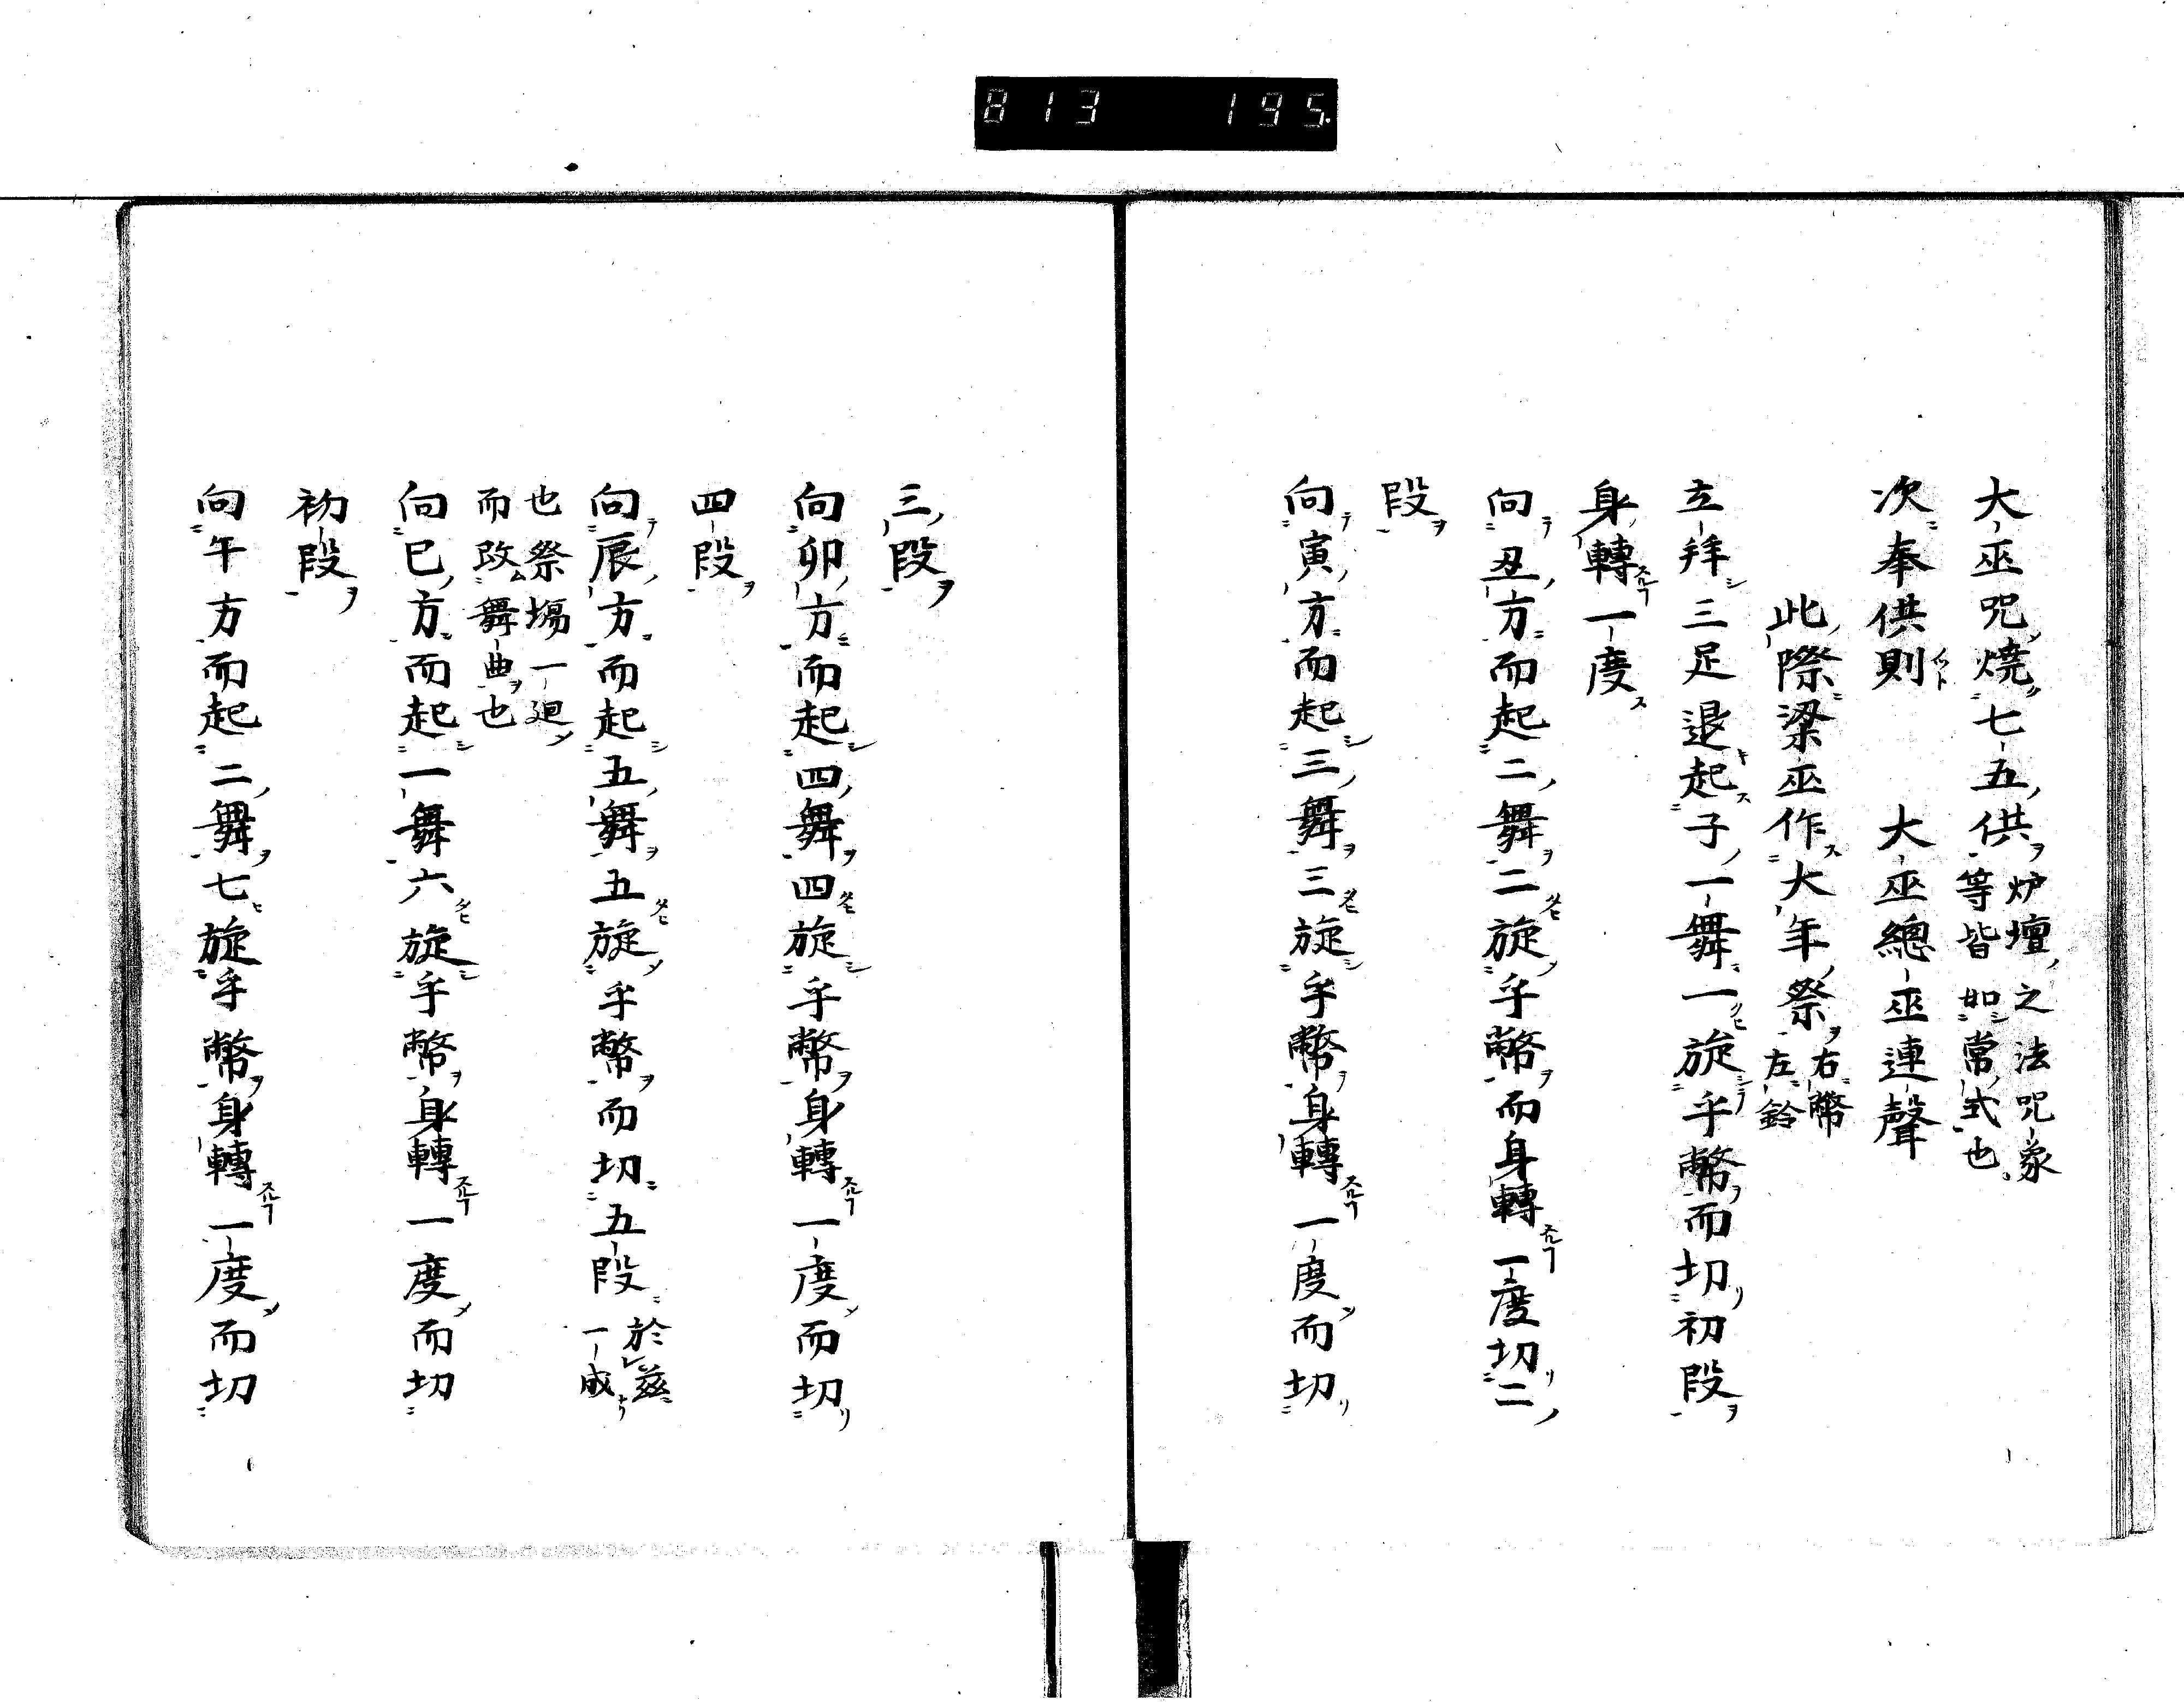 813 195.
大巫咒燒七五供炉壇之法咒象
等皆如常式也
次奉供則 大巫總巫連聲
此際梁巫作大年祭右幣
左鈴
立拜三足退起子一舞一旋乎幣而切初段
身轉一度
向丑方而起二舞二旋乎幣而身轉一度切二
段
向寅方而起三舞三旋乎幣身轉一度而切
三段
向卯方而起四舞四旋乎幣身轉一度而切
四段
向辰方而起五舞五旋乎幣而切五段於茲
一成
也祭場一廻
而改舞曲也
向巳方而起一舞六旋乎幣身轉一度而切
初段
向午方而起二舞七旋乎幣身轉一度而切